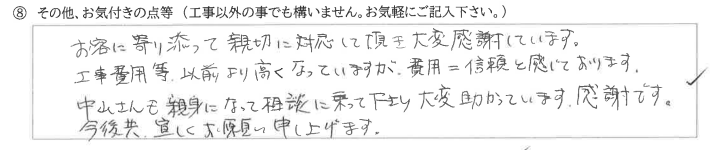 ⑧ その他、お気付きの点等（工事以外の事でも構いません。お気軽にご記入下さい。）
お客に寄り添って親切に対応して頂き大変感謝しています。
工事費用等、以前より高くなっていますが、費用＝信頼と感じております。
中山さんも親身になって相談に乗って下さり大変助かっています。感謝です。
今後共、宜しくお願い申し上げます。